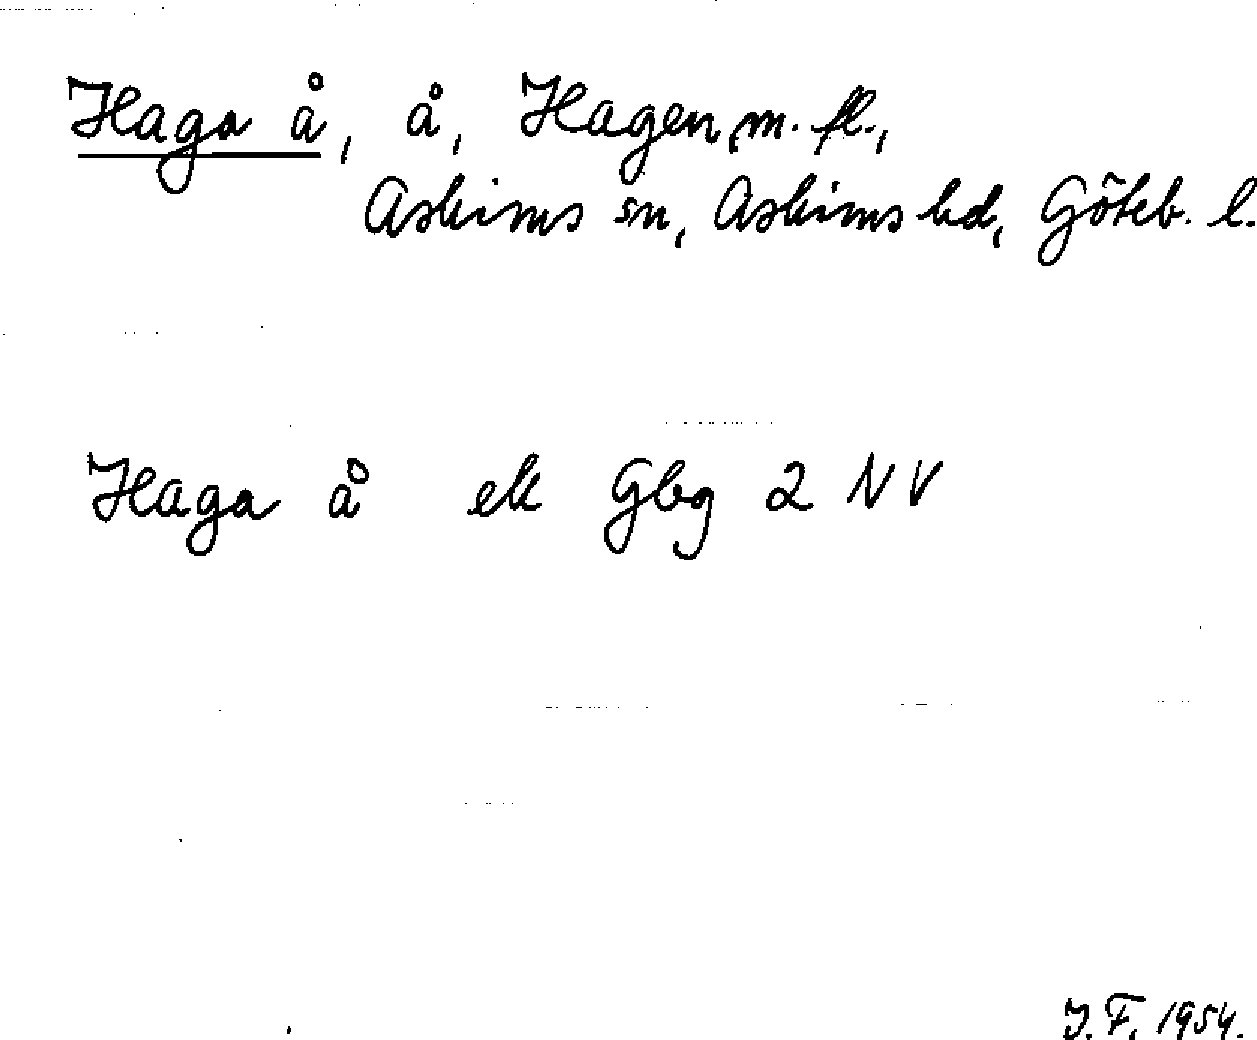 Haga å, å, Hagen, m. fl.,
Askims sn, Askims hd, Göteb. l.
Haga å ek Gbg 2 NV
J. F. 1954.